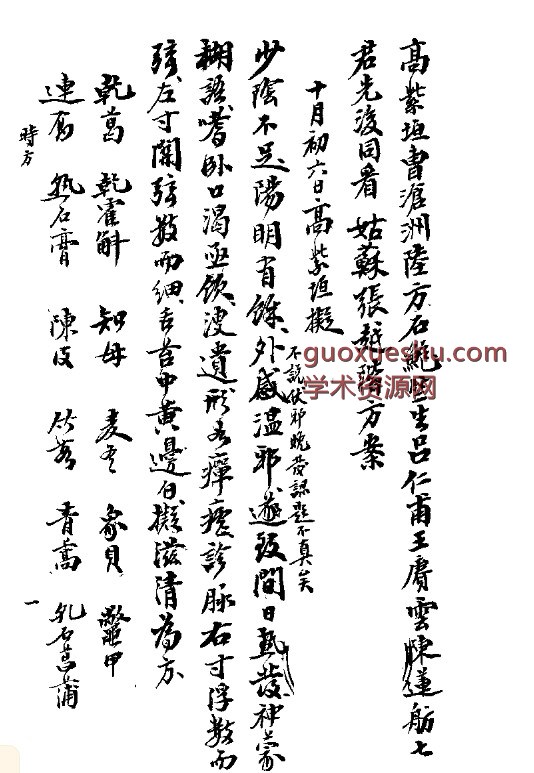 高紫垣曹滄洲陸方石鮑醫生呂仁甫王賡雲陳蓮舫七
君先後同看姑蘇張越階方案
十月初六日高紫垣擬
不說伏邪晚發認題不真矣
少陰不足陽明有餘外感溫邪遂致間日熱發神蒙
糊語嗜卧口渴亟飲溲遺形若癉瘧診脉右寸浮數而
弦左寸關弦數而細舌苔中黄邊白擬滋清為方
乾葛 乾霍斛 知母 麦冬 象貝 鼈甲
連翹 熟石膏 陳皮 竹茹 青蒿 九石菖蒲
時方
一
guoxueshu.com
学术资源网